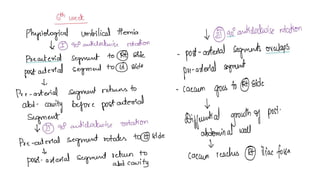 6th week
Physiological umbilical Hernia
↓ Ⓘ 90° antidockwise rotation
Prearterial segment to Rt side
post arterial segment to Lt side
↓
Pre-arterial segment returns to
abd. cavity before post arterial
segment
↓ Ⓘ 90° antidockwise rotation
Pre-arterial segment rotates to Rt side
↓
post-arterial segment return to
abd cavity
↓ Ⓘ 90° antidockwise rotation
- post-arterial segment overlaps
pre-arterial segment
- caecum goes to Rt side
↓
Differential growth of post.
abdominal wall
↓
caecum reaches Rt iliac fossa